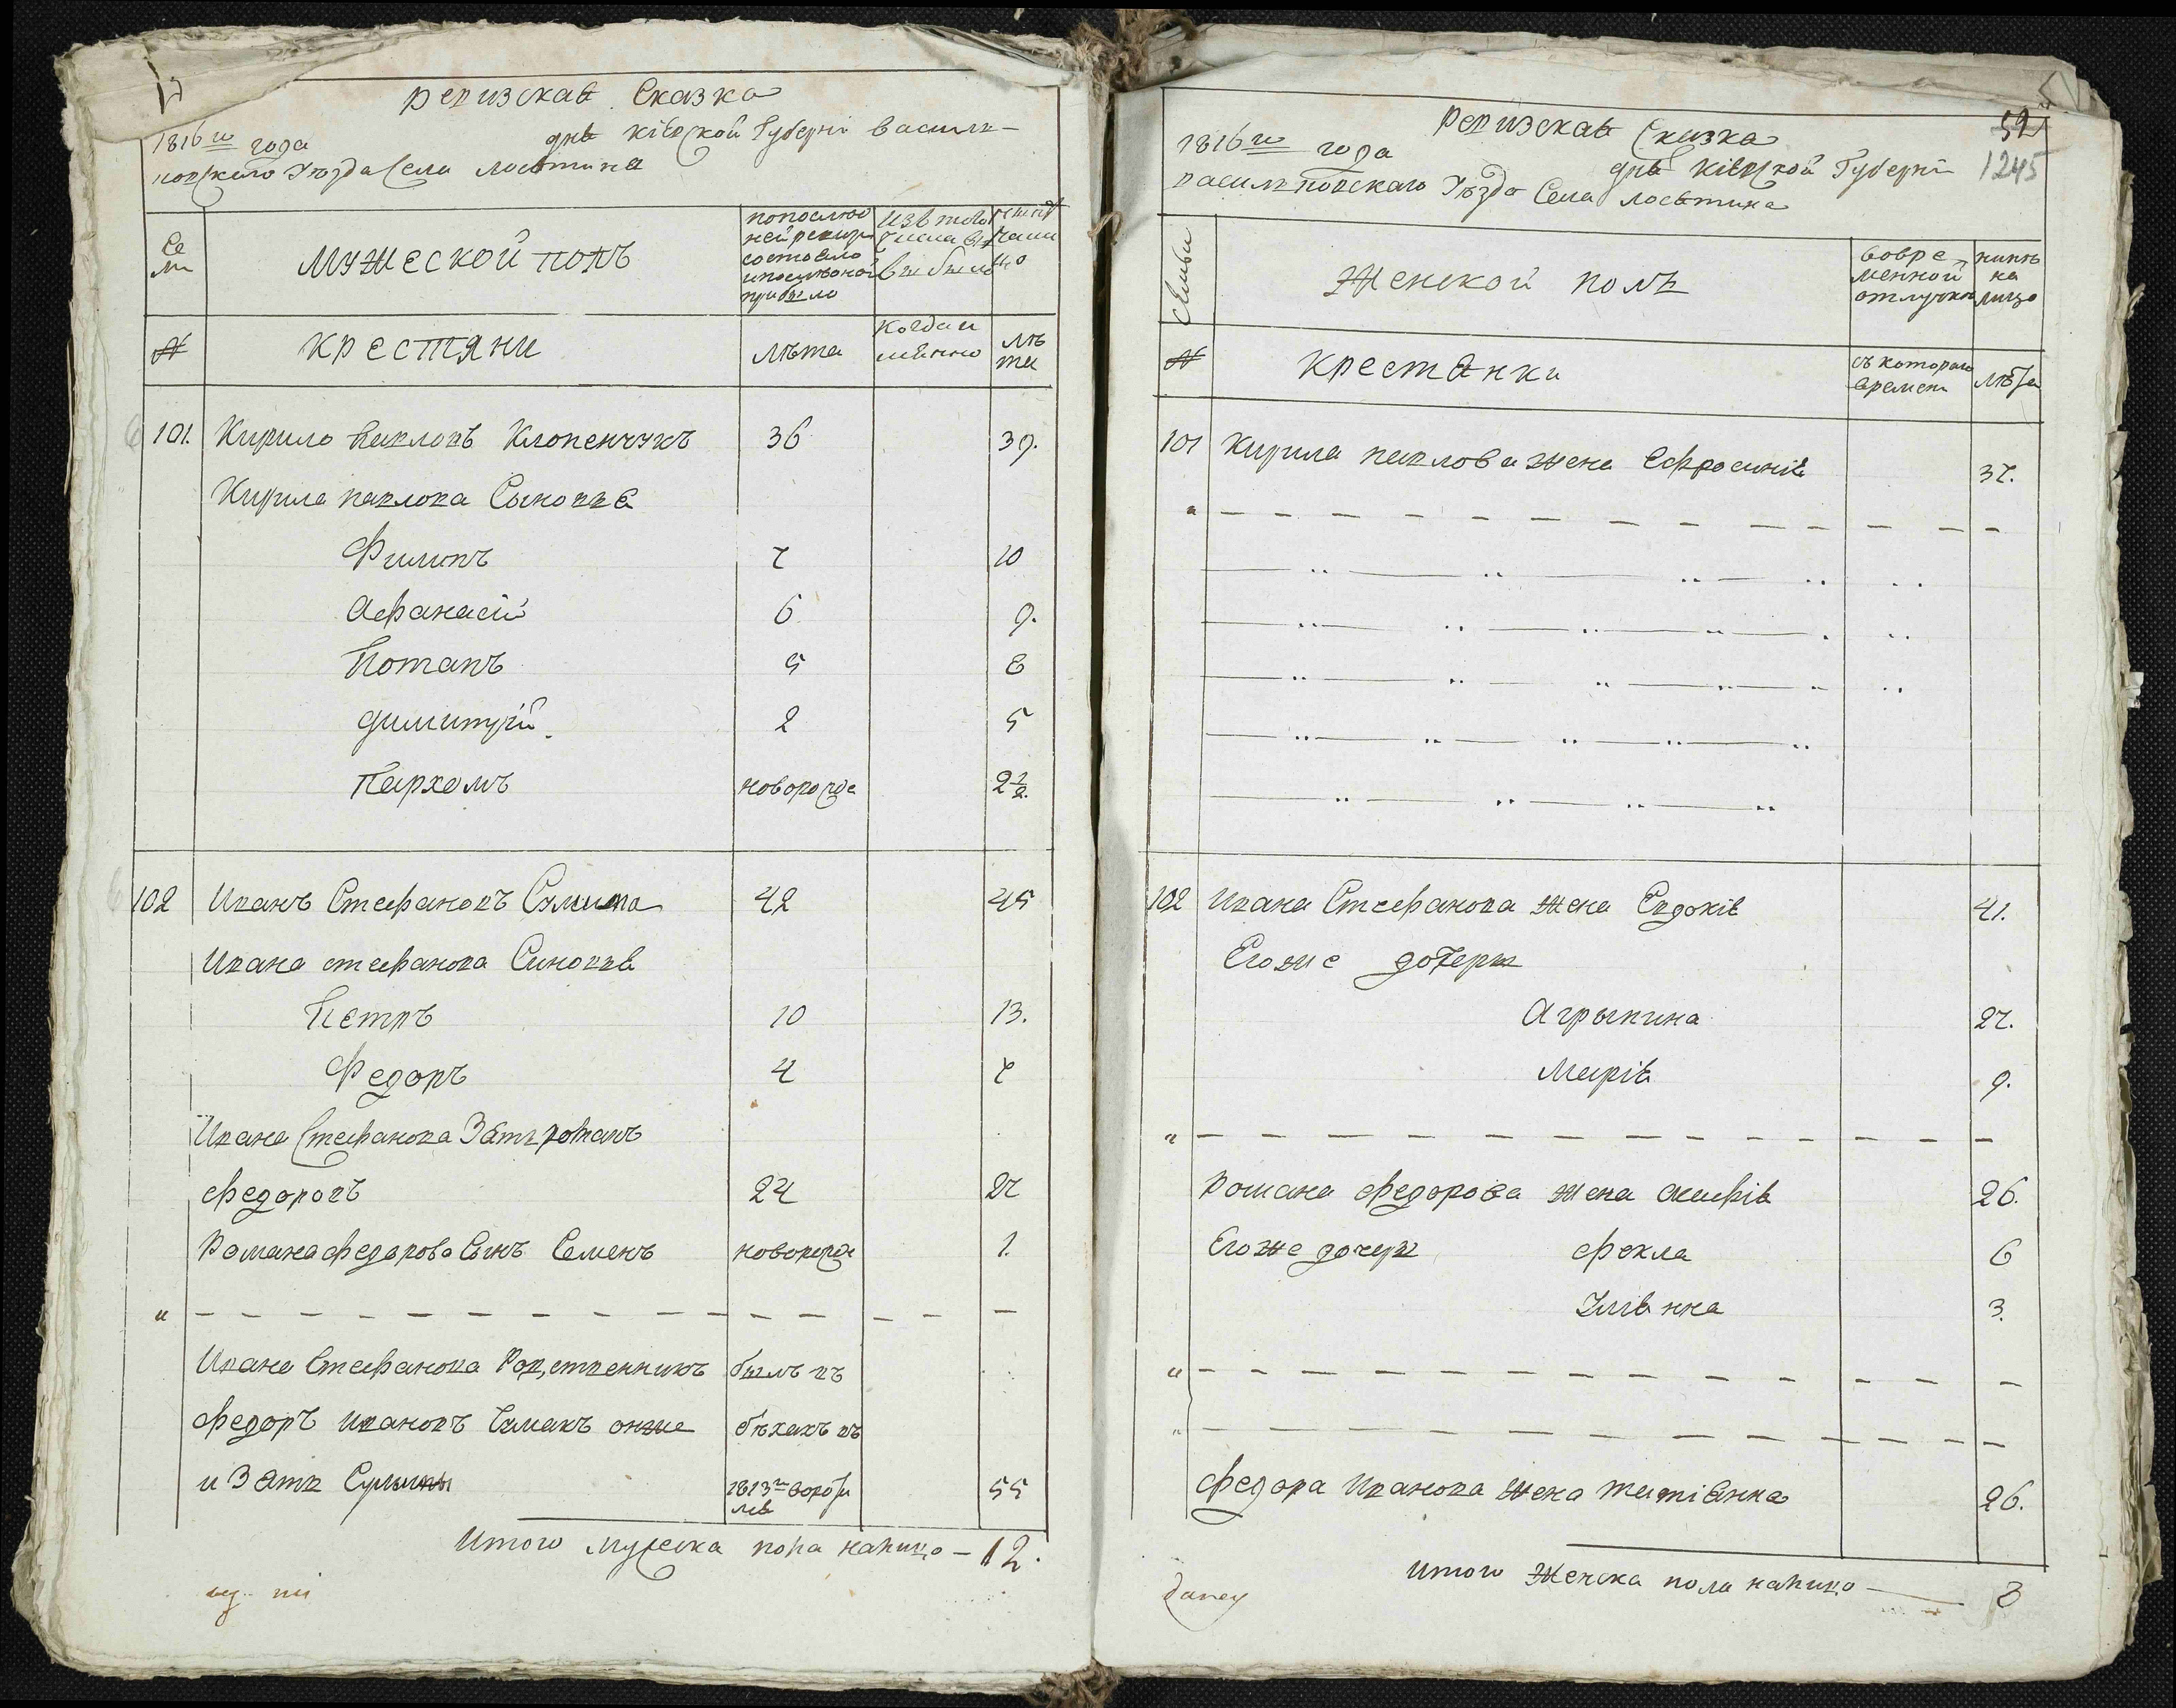 Ревизская Сказка
1816го года дня Кіевской Губерніи Василь-
ковского Уѣзда Села Лосятина
Се
мьи
Мужеской полъ
по послѣд
ней ревизіи
состояло
и послѣ оной
прибыло
Изъ того
числа вы
было
ныне
на ли
цо
№
Крестяни
лѣта
когда и
именно
лѣ
та
101. Кирило Павловъ Клопенчукъ 36 39.
Кирила Павлова Сыновья
Филипъ 7 10
Афанасій 6 9.
Потапъ 5 8
Димитрій 2 5
Пархомъ новорожде 2 1/2.
102 Иванъ Стефановъ Сулима 42 45
Ивана Стефанова Синовья
Петръ 10 13.
Федоръ 4 7
Ивана Стефанова Зять Романъ
Федоровъ 24 27
Романа Федорова Сынъ Семенъ новорожде 1.
" — — — — — — — — — — — — — — — —
Ивана Стефанова Родственникъ былъ въ
Федоръ Ивановъ онже бѣгахъ въ
и Зять Сулимы 1813го вороти
лся 55
Итого Мужеска пола налицо — 12.
Ревизская Сказка
59
1245
1816го года дня Кіевской Губерніи
Васильковскаго Уѣзда Села Лосятина
Семьи
Женской полъ
вовре
менной
отлучки
нынѣ
на
лицо
№
Крестянки
съ котораго
времени
лѣта
101 Кирила Павлова жена Ефросинія 37.
" — — — — — — — — — — — — — —
102 Ивана Стефанова жена Евдокія 41.
Егоже дочери
Агрыпина 27.
Марія 9.
" — — — — — — — — — — — — — —
Романа Федорова жена 26.
Егоже дочери Фекла 6
Уліянна 3.
" — — — — — — — — — — — — — —
" — — — — — — — — — — — — — —
Федора Иванова жена Татіянна 26.
Итого Женска пола налицо — 8